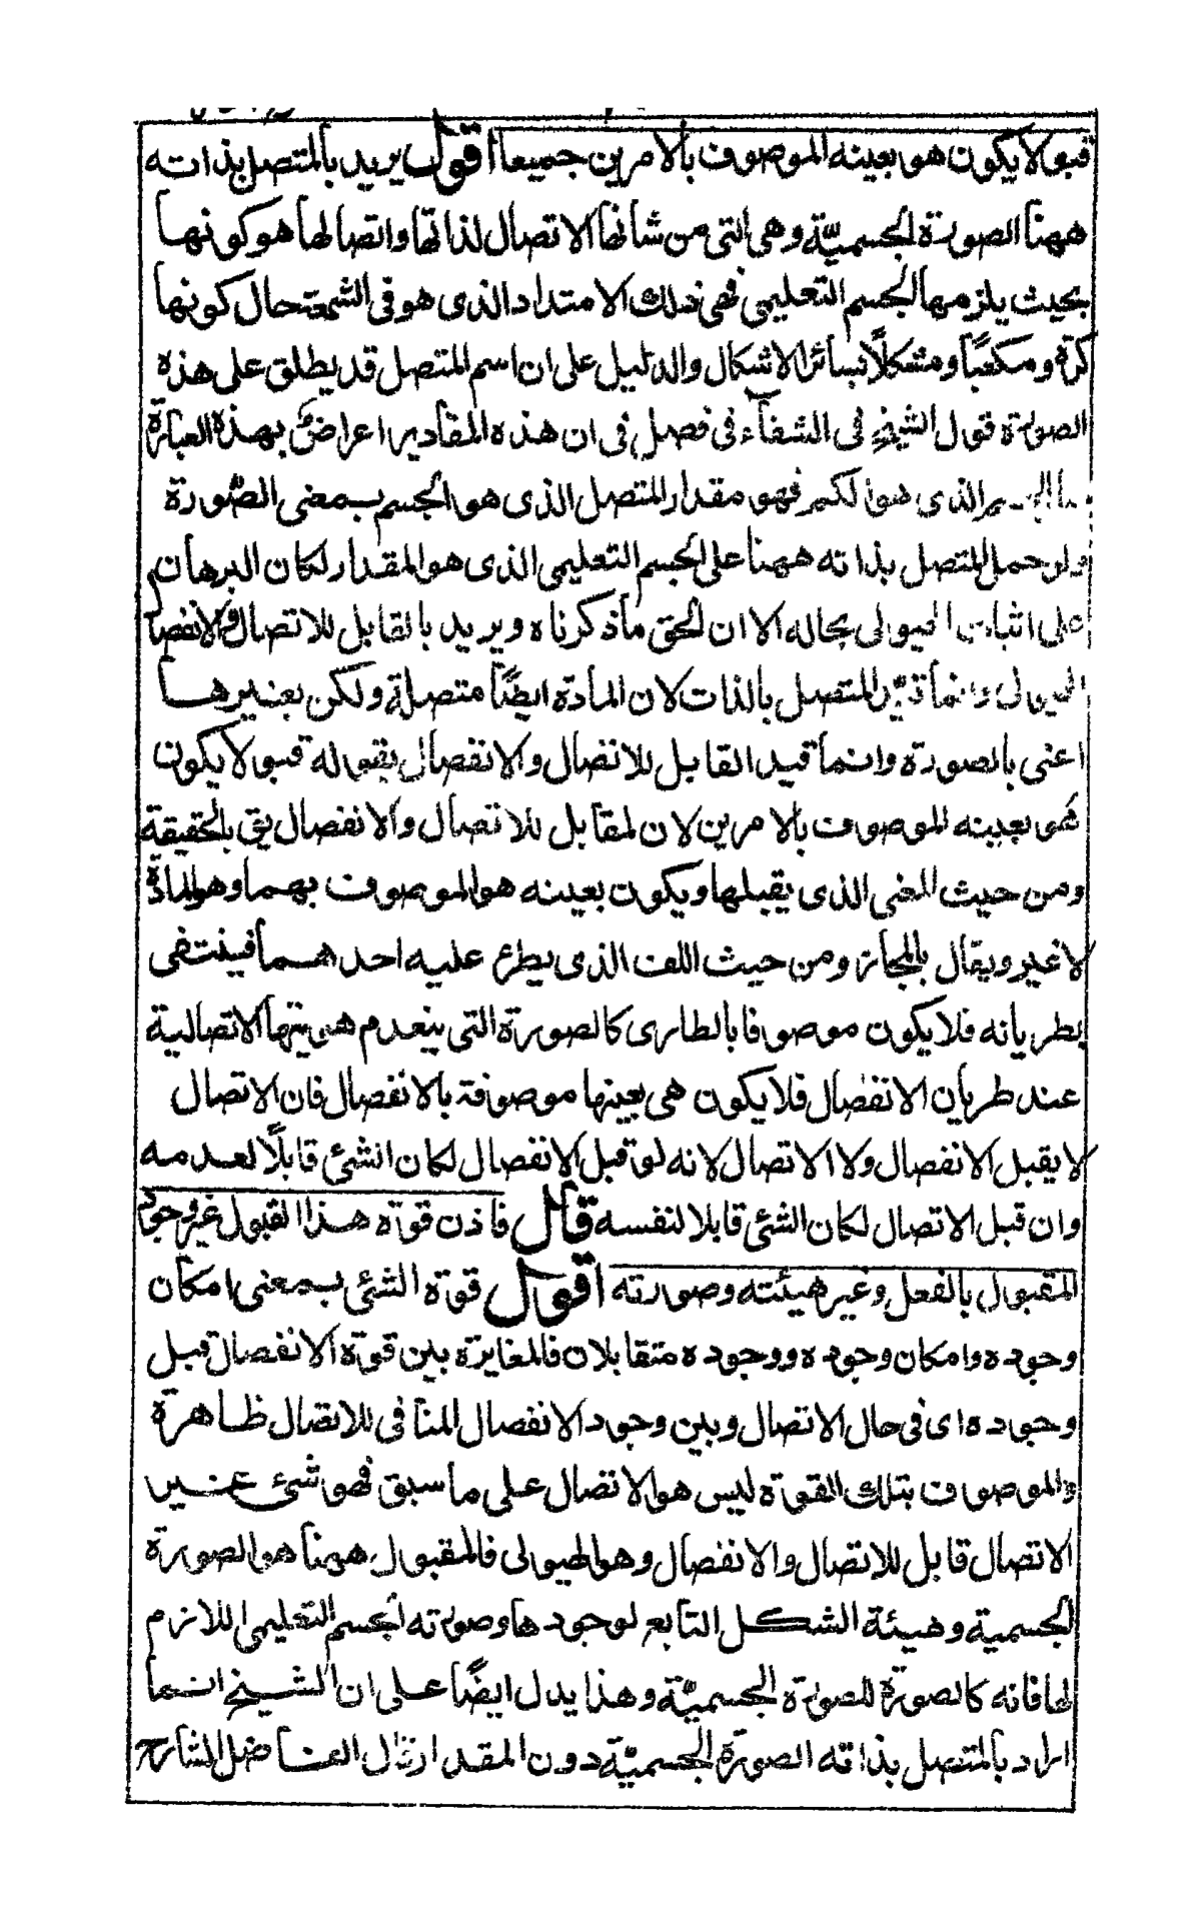 قبولا يكون هو بعينه الموصوف بالامرين جميعا اقول يريد بالمتصل بذاته
ههنا الصورة الجسميّة وهى التى من شانها الاتصال لذاتها واتصالها هو كونها
بحيث يلزمها الجسم التعليمى فهى ذلك الامتداد الذى هو فى الشمعة حال كونها
كرة ومكعبًا ومشكلًا بسائر الاشكال والدليل على ان اسم المتصل قد يطلق على هذه
الصورة قول الشيخ فى الشفآء فى فصل فى ان هذه المقادير اعراض بهذه العبارة
الذى هو الكم فهو مقدار المتصل الذى هو الجسم بمعنى الصّورة
ولو حمل المتصل بذاته ههنا على الجسم التعليمى الذى هو المقدار لكان البرهان
على اثبات الهيولى بحاله الا ان الحق ما ذكرناه ويريد بالقابل للاتصال والانفصال
الهيولى وانما قيّد المتصل بالذات لان المادة ايضًا متصلة ولكن بغيرها
اعنى بالصورة وانما قيد القابل للاتصال والانفصال بقوله قبولا يكون
هو بعينه الموصوف بالامرين لان لمقابل للاتصال والانفصال يق بالحقيقة
ومن حيث المعنى الذى يقبلها ويكون بعينه هو الموصوف بهما وهو المادة
لا غير ويقال بالمجاز ومن حيث اللف الذى يطرء عليه احدهما فينتفى
بطريانه فلا يكون موصوفا بالطارى كالصورة التى ينعدم هويتها الاتصالية
عند طريان الانفصال فلا يكون هى بعينها موصوفة بالانفصال فان الاتصال
لا يقبل الانفصال ولا الاتصال لانه لو قبل الانفصال لكان الشئ قابلًا لعدمه
وان قبل الاتصال لكان الشئ قابلا لنفسه قال فاذن قوة هذا القبول غير وجود
المقبول بالفعل وغير هيئته وصورته اقول قوة الشئ بمعنى امكان
وجوده وامكان وجوده ووجوده متقابلان فالمغايرة بين قوة الانفصال قبل
وجوده اى فى حال الاتصال وبين وجود الانفصال المنافى للاتصال ظاهرة
والموصوف بتلك القوة ليس هو الاتصال على ما سبق فهو شئ غير
الاتصال قابل للاتصال والانفصال وهو الهيولى فالمقبول ههنا هو الصورة
الجسمية وهيئة الشكل التابع لوجودها وصورته الجسم التعليمى اللازم
لها فانه كالصورة للصورة الجسميّة وهذا يدل ايضًا على ان الشيخ انما
اراد بالمتصل بذاته الصورة الجسميّة دون المقدار قال الفاضل الشارح